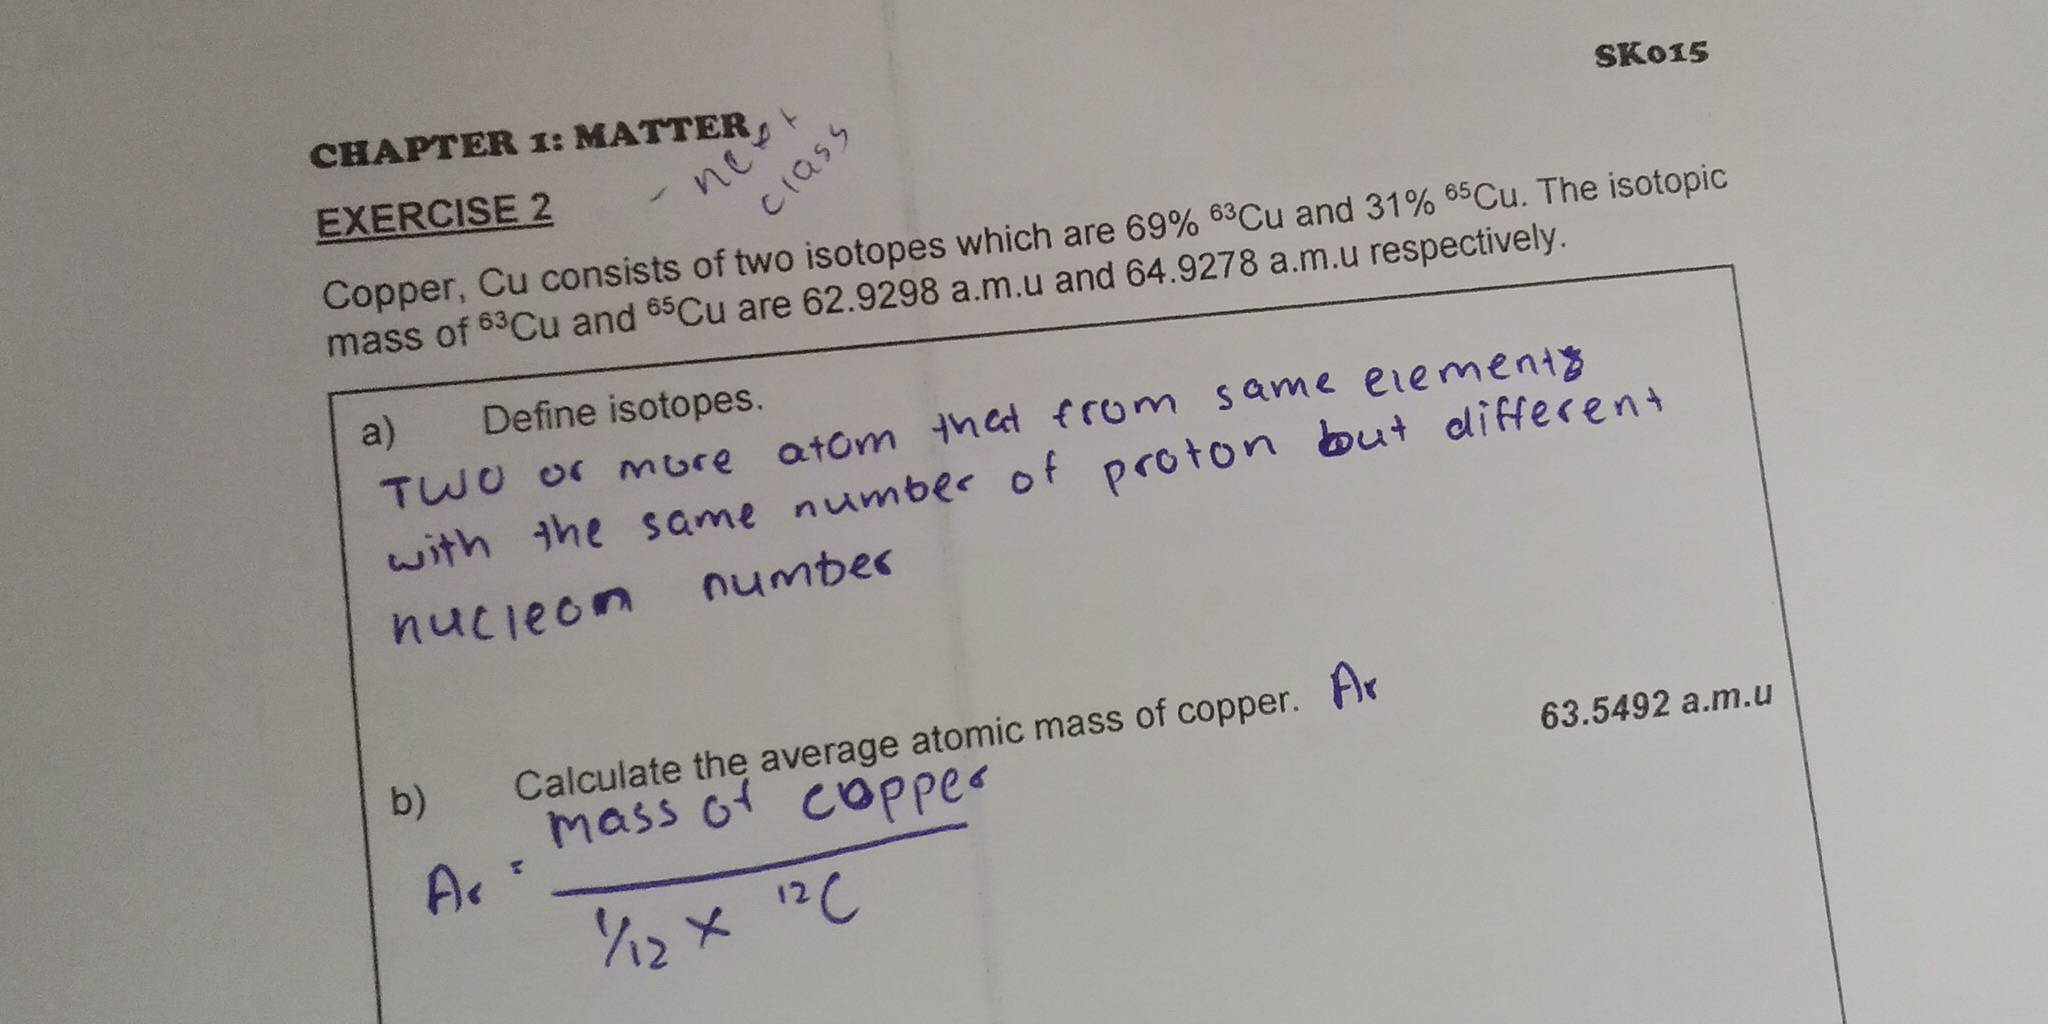 SK015
CHAPTER 1: MATTER
- next
class
EXERCISE 2
Copper, Cu consists of two isotopes which are 69% ⁶³Cu and 31% ⁶⁵Cu. The isotopic
mass of ⁶³Cu and ⁶⁵Cu are 62.9298 a.m.u and 64.9278 a.m.u respectively.
a) Define isotopes.
Two or more atom that from same elements
with the same number of proton but different
nucleon number
b) Calculate the average atomic mass of copper. Ar 63.5492 a.m.u
Ar = mass of copper
1/12 x ¹²C